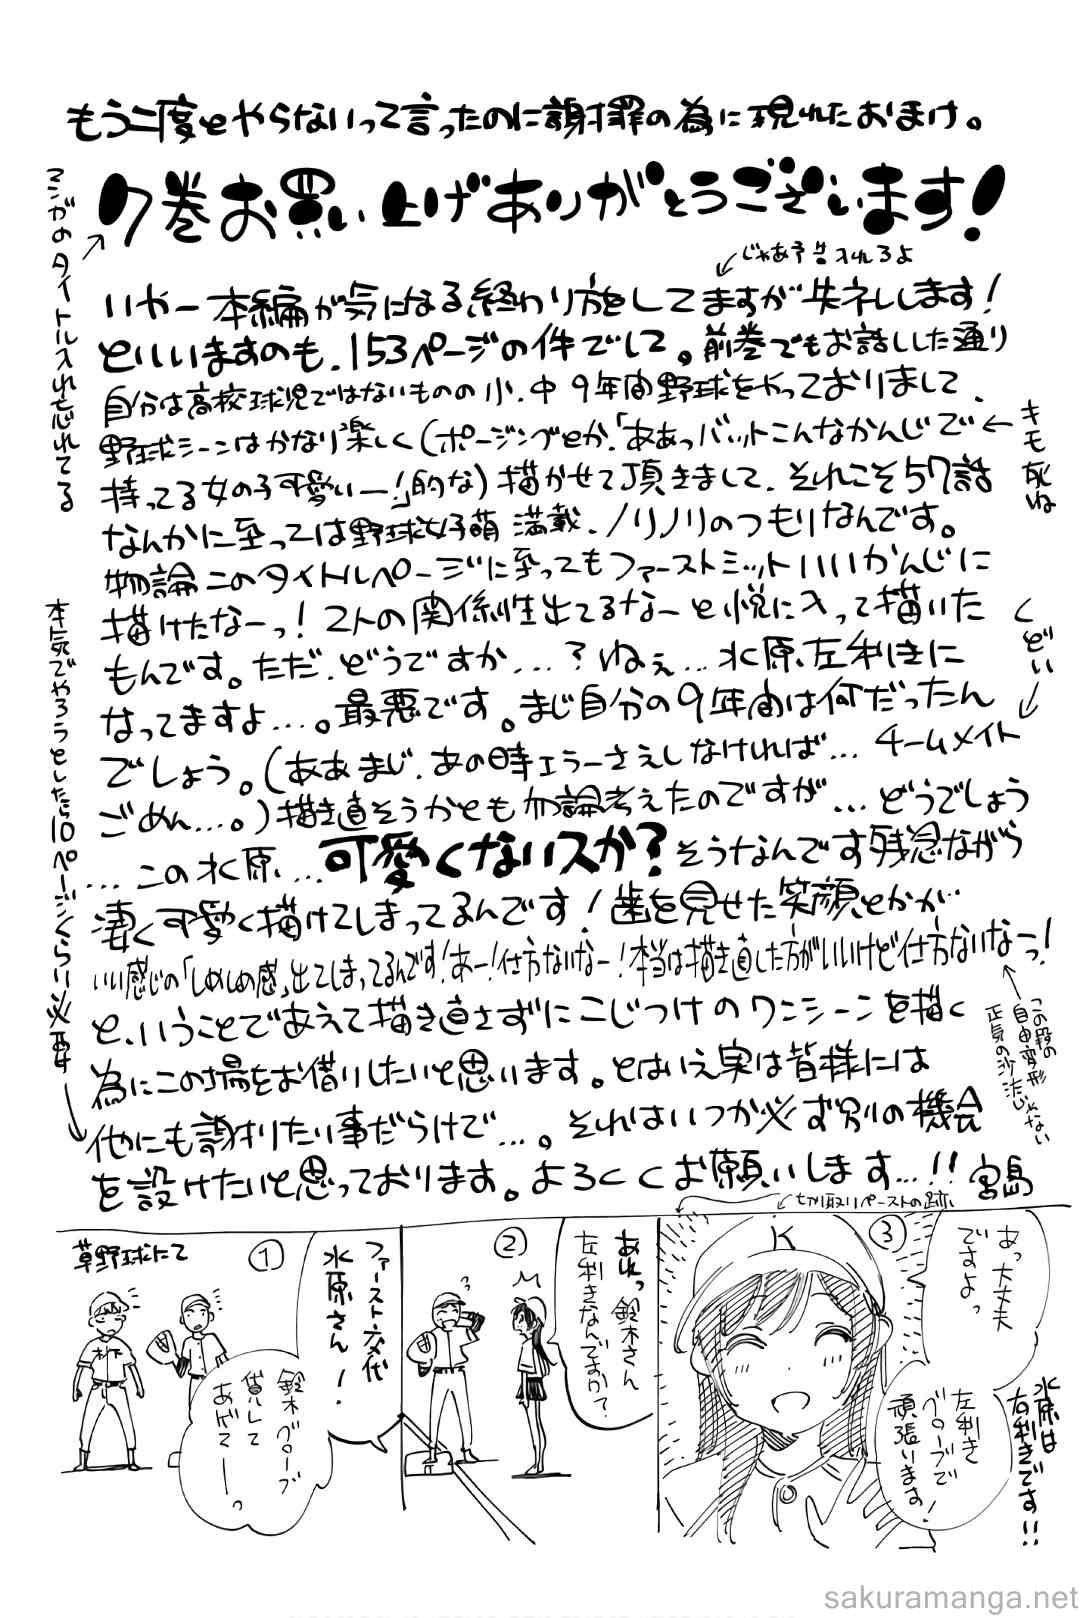 もう二度とやらないって言ったのに謝罪の為に現れたおまけ。
7巻お買い上げありがとうございます!
マンガのタイトル入れ忘れてる
じゃあ予告入れるよ
いやー本編が気になる終わり方をしてますが失礼します!
といいますのも、153ページの件でして。前巻でもお話しした通り
自分は高校球児ではないものの小、中9年間野球をやっておりまして、
野球シーンはかなり楽しく(ポージングとか、「ああっバットこんなかんじで
持ってる女の子可愛いー!」的な)描かせて頂きまして、それこそ57話
なんかに至っては野球女子萌満載、ノリノリのつもりなんです。
キモ死ね
勿論このタイトルページに至ってもファーストミットいいかんじに
描けたなーっ!2人の関係性出てるなーと悦に入って描いた
もんです。ただ、どうですか…?ねぇ…水原、左利きに
なってますよ…。最悪です。まじ自分の9年間は何だったん
でしょう。(ああまじ、あの時エラーさえしなければ…チームメイト
ごめん…。)描き直そうかとも勿論考えたのですが…どうでしょう
くどい
…この水原、…可愛くないスか?そうなんです残念ながら
凄く可愛く描けてしまってるんです!歯を見せた笑顔とかが…
いい感じの「しめしめ感」出てしまってるんです!あー!仕方ないなー!本当は描き直した方がいいけど仕方ないなーっ!
この段の
自由変形
正気の沙汰じゃない
と、いうことであえて描き直さずにこじつけのワンシーンを描く
為にこの場をお借りしたいと思います。とはいえ実は皆様には
他にも謝りたい事だらけで…。それはいつか必ず別の機会
を設けたいと思っております。よろしくお願いします…!!宮島
本気でやろうとしたら10ページくらい必要
切り取りペーストの跡
草野球にて
①
木下
ファースト交代
水原さん!
鈴木グローブ
貸して
あげてーっ
②
あれっ鈴木さん
左利きなんですか?
③
K
あっ大丈夫
ですよっ
左利き
グローブで
頑張ります!
水原は
右利きです!!
sakuramanga.net